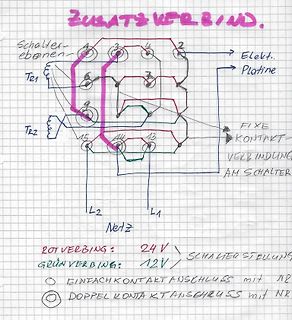 ZUSATZVERBIND.
Schalter-
ebenen
1 3 4 2
Elekt.
Platine
TR1
6 7
9
TR2
15 14 13
FIXE
KONTAKT-
VERBINDUNG
AM SCHALTER
L2 L1
Netz
ROTVERBING: 24V
GRÜNVERBING: 12V
SCHALTERSTELLUNG
EINFACHKONTAKTANSCHLUSS mit NR
DOPPELKONTAKTANSCHLUSS mit NR